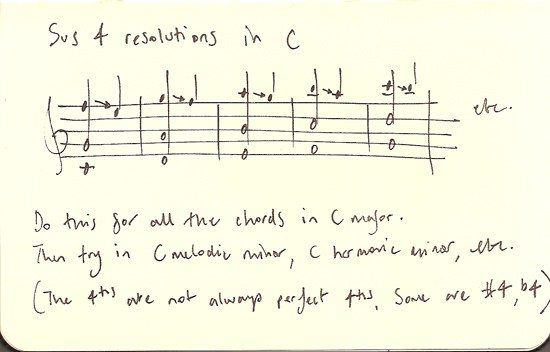 Sus 4 resolutions in C
etc.
Do this for all the chords in C major.
Then try in C melodic minor, C harmonic minor, etc.
(The 4ths are not always perfect 4ths, Some are #4, b4)